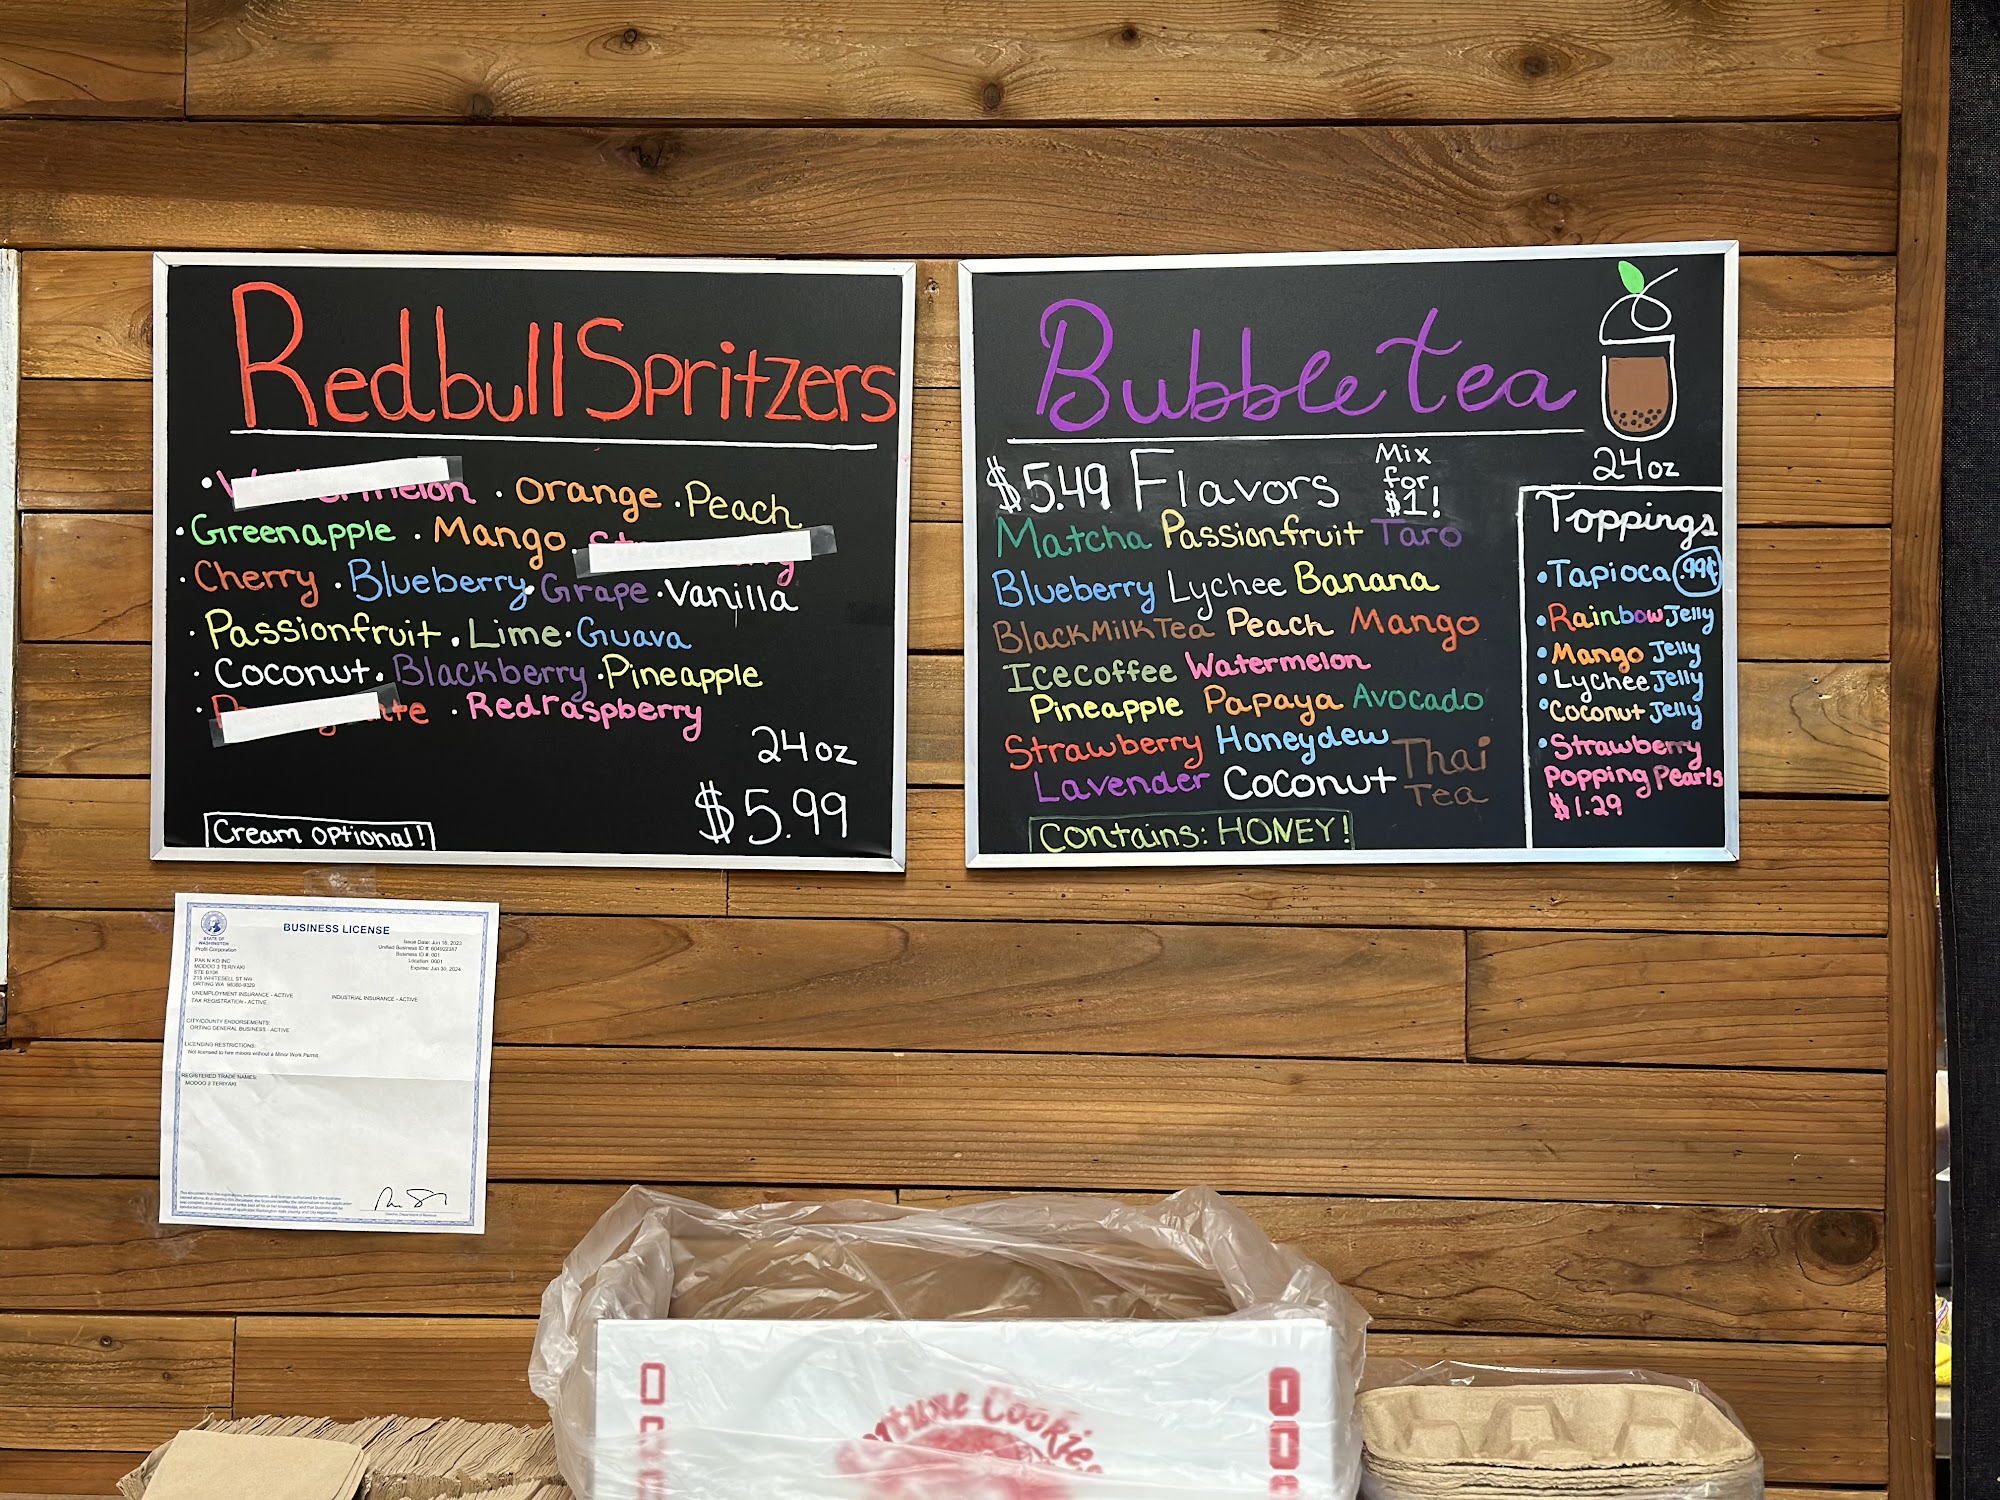 Redbull Spritzers
• Orange • Peach
• Greenapple • Mango •
• Cherry • Blueberry • Grape • Vanilla
• Passionfruit • Lime • Guava
• Coconut • Blackberry • Pineapple
• • Redraspberry
24oz
$5.99
Cream optional!
Bubble tea
24oz
$5.49 Flavors
Mix
for
$1!
Matcha Passionfruit Taro
Blueberry Lychee Banana
BlackMilkTea Peach Mango
Icecoffee Watermelon
Pineapple Papaya Avocado
Strawberry Honeydew
Thai
Tea
Lavender Coconut
Contains: HONEY!
Toppings
• Tapioca .99¢
• Rainbow Jelly
• Mango Jelly
• Lychee Jelly
• Coconut Jelly
• Strawberry
Popping Pearls
$1.29
BUSINESS LICENSE
STATE OF
WASHINGTON
Profit Corporation
Issue Date: Jun 18, 2023
Unified Business ID #: 604922387
Business ID #: 001
Location: 0001
Expires: Jun 30, 2024
PAK N KO INC
MODOO 3 TERIYAKI
STE B106
215 WHITESELL ST NW
ORTING WA 98360-9329
UNEMPLOYMENT INSURANCE - ACTIVE
INDUSTRIAL INSURANCE - ACTIVE
TAX REGISTRATION - ACTIVE
CITY/COUNTY ENDORSEMENTS:
ORTING GENERAL BUSINESS - ACTIVE
LICENSING RESTRICTIONS:
Not licensed to hire minors without a Minor Work Permit
REGISTERED TRADE NAMES:
MODOO 3 TERIYAKI
Fortune Cookies